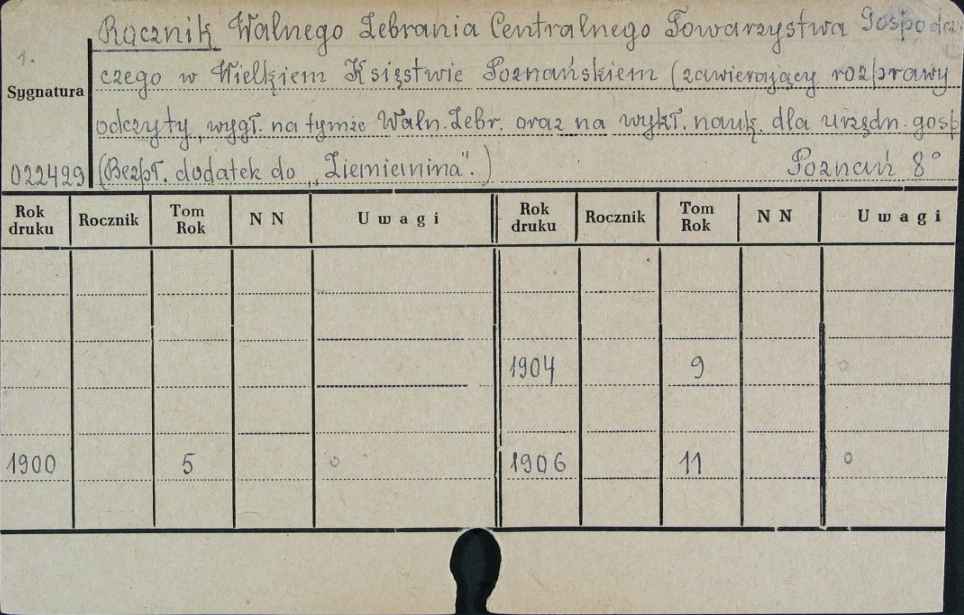 1.
Rocznik Walnego Zebrania Centralnego Towarzystwa Gospodar-
czego w Wielkiem Księstwie Poznańskiem (zawierający rozprawy
Sygnatura
odczyty, wygł. na tymże Waln. Zebr. oraz na wykł. nauk. dla urzędn. gosp
022429 (Bezpł. dodatek do "Ziemianina".) Poznań 8°
Rok druku Rocznik Tom Rok N N Uwagi Rok druku Rocznik Tom Rok N N Uwagi
1904 9 o
1900 5 o 1906 11 o